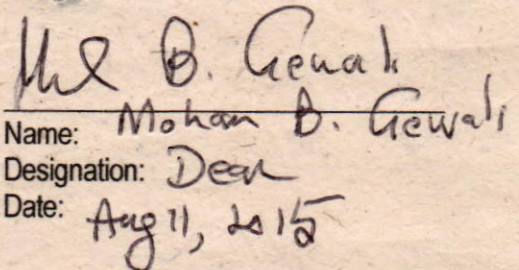 B. Gewali
Name: Mohan B. Gewali
Designation: Dean
Date: Aug 11, 2015